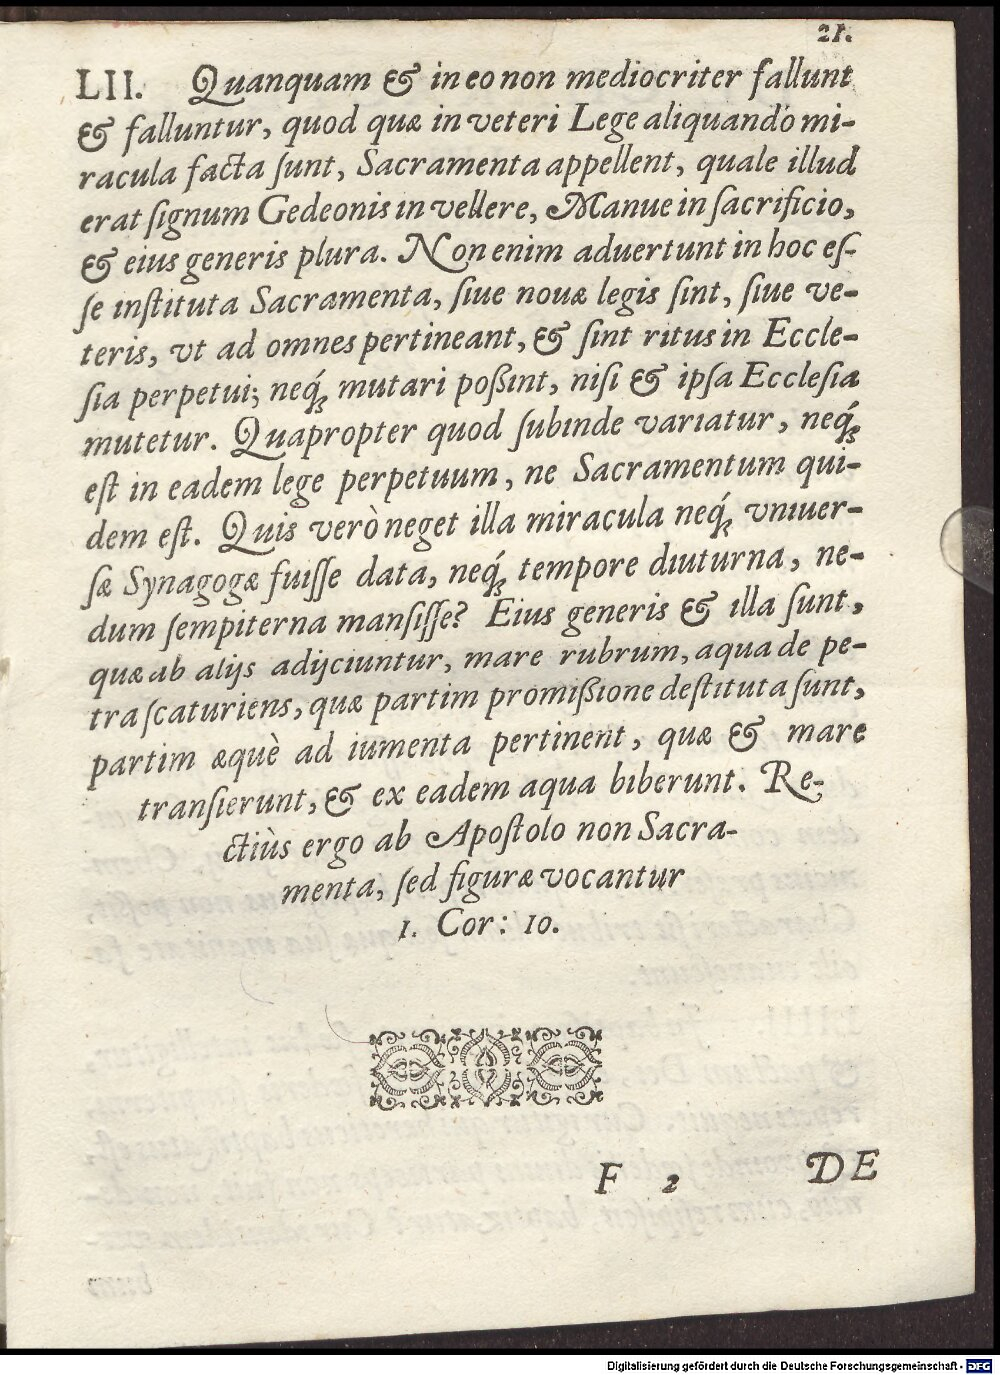 21.
LII. Quanquam & in eo non mediocriter fallunt
& falluntur, quod quæ in veteri Lege aliquando mi-
racula facta ſunt, Sacramenta appellent, quale illud
erat ſignum Gedeonis in vellere, Manue in ſacrificio,
& eius generis plura. Non enim aduertunt in hoc eſ-
ſe inſtituta Sacramenta, ſiue nouæ legis ſint, ſiue ve-
teris, vt ad omnes pertineant, & ſint ritus in Eccle-
ſia perpetui; neq́ꝫ mutari poßint, niſi & ipſa Eccleſia
mutetur. Quapropter quod ſubinde variatur, neq́ꝫ
eſt in eadem lege perpetuum, ne Sacramentum qui-
dem eſt. Quis verò neget illa miracula neq́ꝫ vniuer-
ſæ Synagogæ fuiſſe data, neq́ꝫ tempore diuturna, ne-
dum ſempiterna manſiſſe? Eius generis & illa ſunt,
quæ ab alijs adijciuntur, mare rubrum, aqua de pe-
tra ſcaturiens, quæ partim promißione deſtituta ſunt,
partim æquè ad iumenta pertinent, quæ & mare
tranſierunt, & ex eadem aqua biberunt. Re-
ctiùs ergo ab Apoſtolo non Sacra-
menta, ſed figuræ vocantur
1. Cor: 10.
F 2 DE
Digitalisierung gefördert durch die Deutsche Forschungsgemeinschaft - DFG